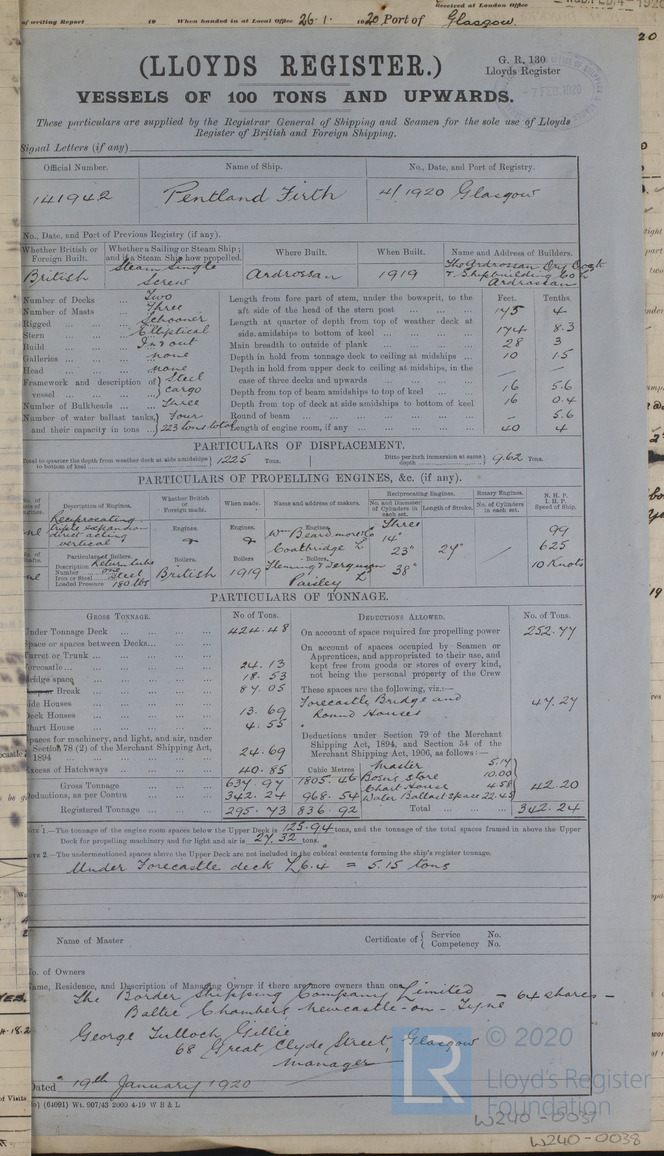 of writing Report 19 When handed in at Local Office 26.1.1920 Port of Glasgow.
Received at London Office
(LLOYDS REGISTER.)
G. R. 130.
Lloyds Register
VESSELS OF 100 TONS AND UPWARDS.
7 FEB. 1920
These particulars are supplied by the Registrar General of Shipping and Seamen for the sole use of Lloyds
Register of British and Foreign Shipping.
Signal Letters (if any)
Official Number. Name of Ship. No., Date, and Port of Registry.
141942 Pentland Firth 4/1920 Glasgow
No., Date, and Port of Previous Registry (if any).
Whether British or Foreign Built. Whether a Sailing or Steam Ship; and if a Steam Ship how propelled. Where Built. When Built. Name and Address of Builders.
British Steam Single Screw Ardrossan 1919 The Ardrossan Dry Dock & Shipbuilding Co Ld Ardrossan
Number of Decks Two
Number of Masts Three
Rigged Schooner
Stern Elliptical
Build In & out
Galleries none
Head none
Framework and description of vessel Steel Cargo
Number of Bulkheads Three
Number of water ballast tanks, and their capacity in tons Four 223 tons total
Feet. Tenths.
Length from fore part of stem, under the bowsprit, to the aft side of the head of the stern post 175 4
Length at quarter of depth from top of weather deck at side amidships to bottom of keel 174 8.3
Main breadth to outside of plank 28 3
Depth in hold from tonnage deck to ceiling at midships 10 15
Depth in hold from upper deck to ceiling at midships, in the case of three decks and upwards — —
Depth from top of beam amidships to top of keel 16 5.6
Depth from top of deck at side amidships to bottom of keel 16 0.4
Round of beam - 5.6
Length of engine room, if any 40 4
PARTICULARS OF DISPLACEMENT.
Total to quarter the depth from weather deck at side amidships to bottom of keel 1225 Tons. Ditto per inch immersion at same depth 9.62 Tons.
PARTICULARS OF PROPELLING ENGINES, &c. (if any).
No. of sets of Engines. Description of Engines. Whether British or Foreign made. When made. Name and address of makers. Reciprocating Engines. No. and Diameter of Cylinders in each set. Length of Stroke. Rotary Engines. No. of Cylinders in each set. N. H. P. I. H. P. Speed of Ship.
Reciprocating triple expansion direct acting vertical
Engines. Engines. Engines. Wm Beardmore & Co Ld Coatbridge
Three 14" 23" 38" 24" 99 625 10 Knots
No. of Shafts. Particulars of Boilers. Description Return tube Number one Iron or Steel Steel Loaded Pressure 180 lbs
Boilers. British Boilers 1919 Boilers. Fleming & Ferguson Ld Paisley
PARTICULARS OF TONNAGE.
GROSS TONNAGE. No of Tons. DEDUCTIONS ALLOWED. No. of Tons.
Under Tonnage Deck 424.48
Space or spaces between Decks
Turret or Trunk
Forecastle 24.13
Bridge space 18.53
Break 87.05
Side Houses
Deck Houses 13.69
Chart House 4.55
Spaces for machinery, and light, and air, under Section 78 (2) of the Merchant Shipping Act, 1894 24.69
Excess of Hatchways 40.85
Cubic Metres
Gross Tonnage 637.97 1805.46
Deductions, as per Contra 342.24 968.54
Registered Tonnage 295.73 836.92
On account of space required for propelling power 252.77
On account of spaces occupied by Seamen or Apprentices, and appropriated to their use, and kept free from goods or stores of every kind, not being the personal property of the Crew
These spaces are the following, viz.:—
Forecastle, Bridge and Round Houses 47.27
Deductions under Section 79 of the Merchant Shipping Act, 1894, and Section 54 of the Merchant Shipping Act, 1906, as follows:—
Master 5.17
Bosns Store 10.00
Chart House 4.58
Water Ballast space 22.45
42.20
Total 342.24
NOTE 1.—The tonnage of the engine room spaces below the Upper Deck is 125.94 tons, and the tonnage of the total spaces framed in above the Upper
Deck for propelling machinery and for light and air is 27.32 tons.
NOTE 2.—The undermentioned spaces above the Upper Deck are not included in the cubical contents forming the ship's register tonnage.
Under Forecastle deck 6.4 = 5.15 tons
Name of Master Certificate of { Service No. Competency No.
No. of Owners
Name, Residence, and Description of Managing Owner if there are more owners than one
The Border Shipping Company Limited
Baltic Chambers, Newcastle-on-Tyne - 64 shares -
George Tulloch Gillie
68 Great Clyde Street, Glasgow
Manager
Dated 19th January 1920
(64091) Wt. 907/43 2000 4-19 W B & L
LR © 2020
Lloyd's Register
Foundation
W240-0037
W240-0038